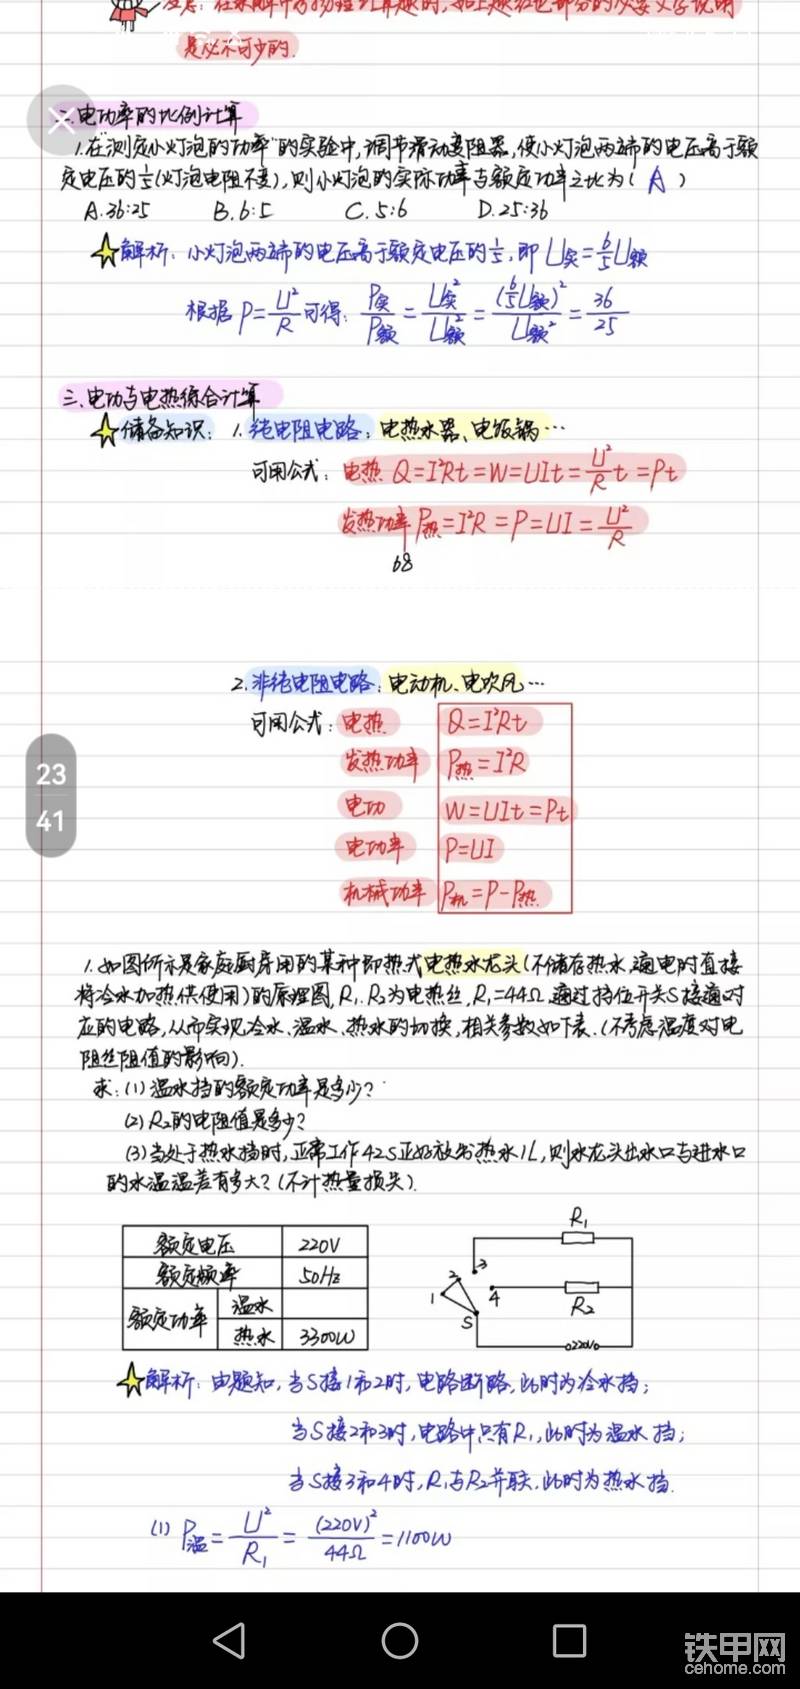 注意：在求解中考物理计算题时，如上题红色部分的必要文字说明
是必不可少的.
二、电功率的比例计算
1.在"测定小灯泡的功率"的实验中，调节滑动变阻器，使小灯泡两端的电压高于额
定电压的1/5(灯泡电阻不变)，则小灯泡的实际功率与额定功率之比为( A )
A.36:25 B.6:5 C.5:6 D.25:36
解析：小灯泡两端的电压高于额定电压的1/5，即 U实=6/5U额
根据 P=U²/R 可得：P实/P额=U实²/U额²=(6/5U额)²/U额²=36/25
三、电功与电热综合计算
储备知识：1.纯电阻电路：电热水器、电饭锅…
可用公式：电热 Q=I²Rt=W=UIt=U²/R t=Pt
发热功率P热=I²R=P=UI=U²/R
68
2.非纯电阻电路：电动机、电吹风…
可用公式：电热 Q=I²Rt
发热功率 P热=I²R
23
电功 W=UIt=Pt
41
电功率 P=UI
机械功率 P机=P-P热
1.如图所示是家庭厨房用的某种即热式电热水龙头(不储存热水，通电时直接
将冷水加热供使用)的原理图，R₁、R₂为电热丝，R₁=44Ω，通过挡位开关S接通对
应的电路，从而实现冷水、温水、热水的切换，相关参数如下表.(不考虑温度对电
阻丝阻值的影响).
求：(1)温水挡的额定功率是多少？
(2)R₂的电阻值是多少？
(3)当处于热水挡时，正常工作42S正好放出热水1L，则水龙头出水口与进水口
的水温温差有多大？(不计热量损失).
额定电压 220V
额定频率 50Hz
额定功率 温水
热水 3300W
R₁
3
2
1
4
R₂
S
220V
解析：由题知，当S接1和2时，电路断路，此时为冷水挡；
当S接2和3时，电路中只有R₁，此时为温水挡；
当S接3和4时，R₁与R₂并联，此时为热水挡.
(1) P温=U²/R₁=(220V)²/44Ω=1100W
铁甲网
cehome.com